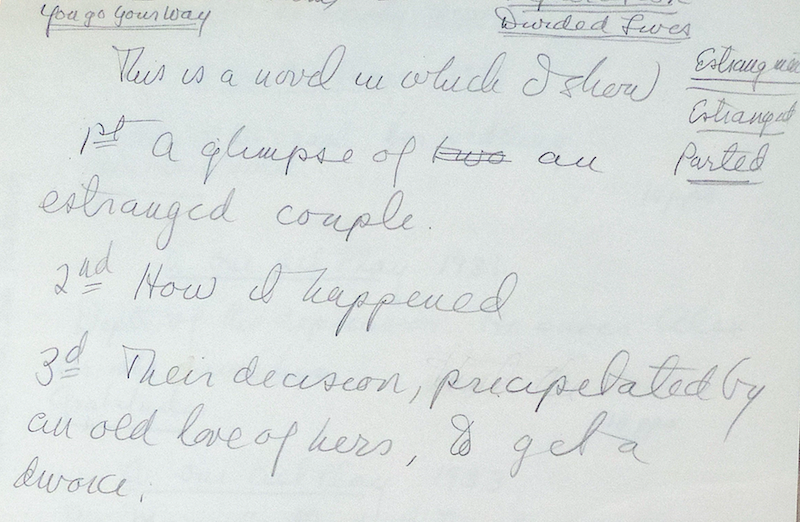 You go Your Way
Divided Lives
This is a novel in which I show
Estranged
Estranged
1st A glimpse of two an
Parted
estranged couple.
2nd How it happened
3d Their decision, precipitated by
an old love of hers, to get a
divorce.